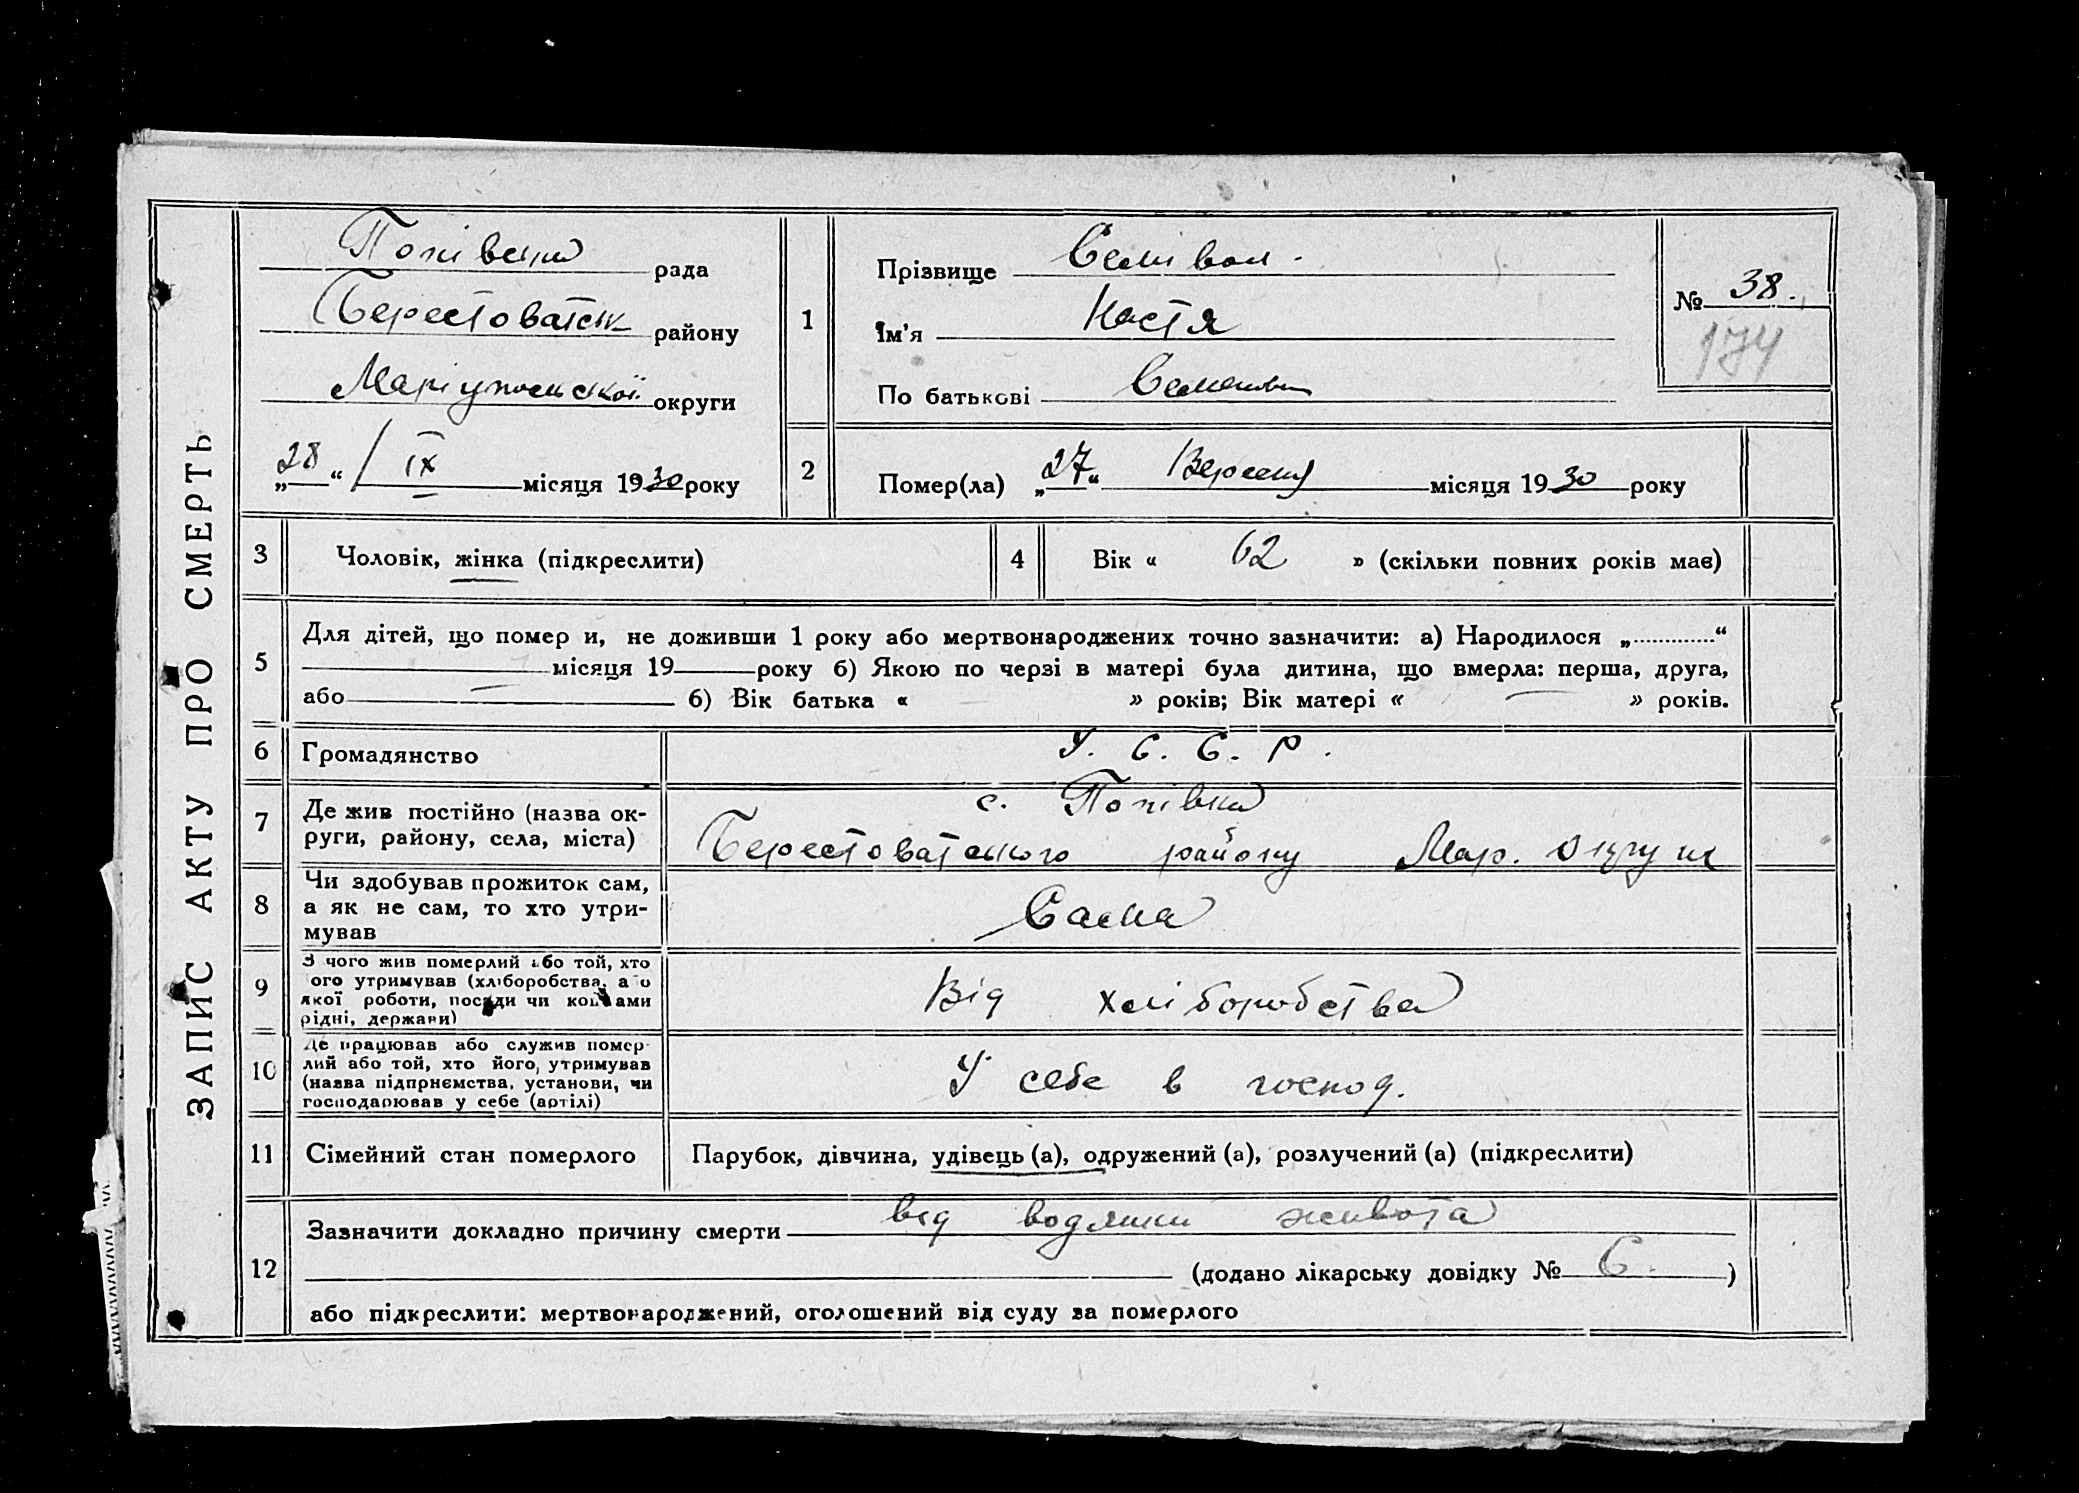 ЗАПИС АКТУ ПРО СМЕРТЬ
Попівська рада
Берестоватськ району
Маріупольської округи
„28“ / IX місяця 1930 року
1
Прізвище Селівон.
Ім'я Настя
По батькові Семенівн
№ 38.
174
2
Помер(ла) „27“ Вересня місяця 1930 року
3 Чоловік, жінка (підкреслити)
4 Вік « 62 » (скільки повних років має)
5 Для дітей, що помер и, не доживши 1 року або мертвонароджених точно зазначити: а) Народилося „.............“
місяця 19 року б) Якою по черзі в матері була дитина, що вмерла: перша, друга,
або — б) Вік батька « » років; Вік матері « — » років.
6 Громадянство У. С. С. Р.
7 Де жив постійно (назва ок-
руги, району, села, міста)
с. Попівка
Берестоватського району Мар. округи
8 Чи здобував прожиток сам,
а як не сам, то хто утри-
мував
Сама
9 З чого жив померлий або той, хто
ого утримував (хліборобства, а о
якої роботи, посади чи коштами
рідні, держави)
Від хліборобства
10 Де працював або служив помер-
лий або той, хто його, утримував
(назва підприємства, установи, чи
господарював у себе (артілі)
У себе в господ.
11 Сімейний стан померлого Парубок, дівчина, удівець (а), одружений (а), розлучений (а) (підкреслити)
12 Зазначити докладно причину смерти від водянки живота
(додано лікарську довідку № 6. )
або підкреслити: мертвонароджений, оголошений від суду за померлого